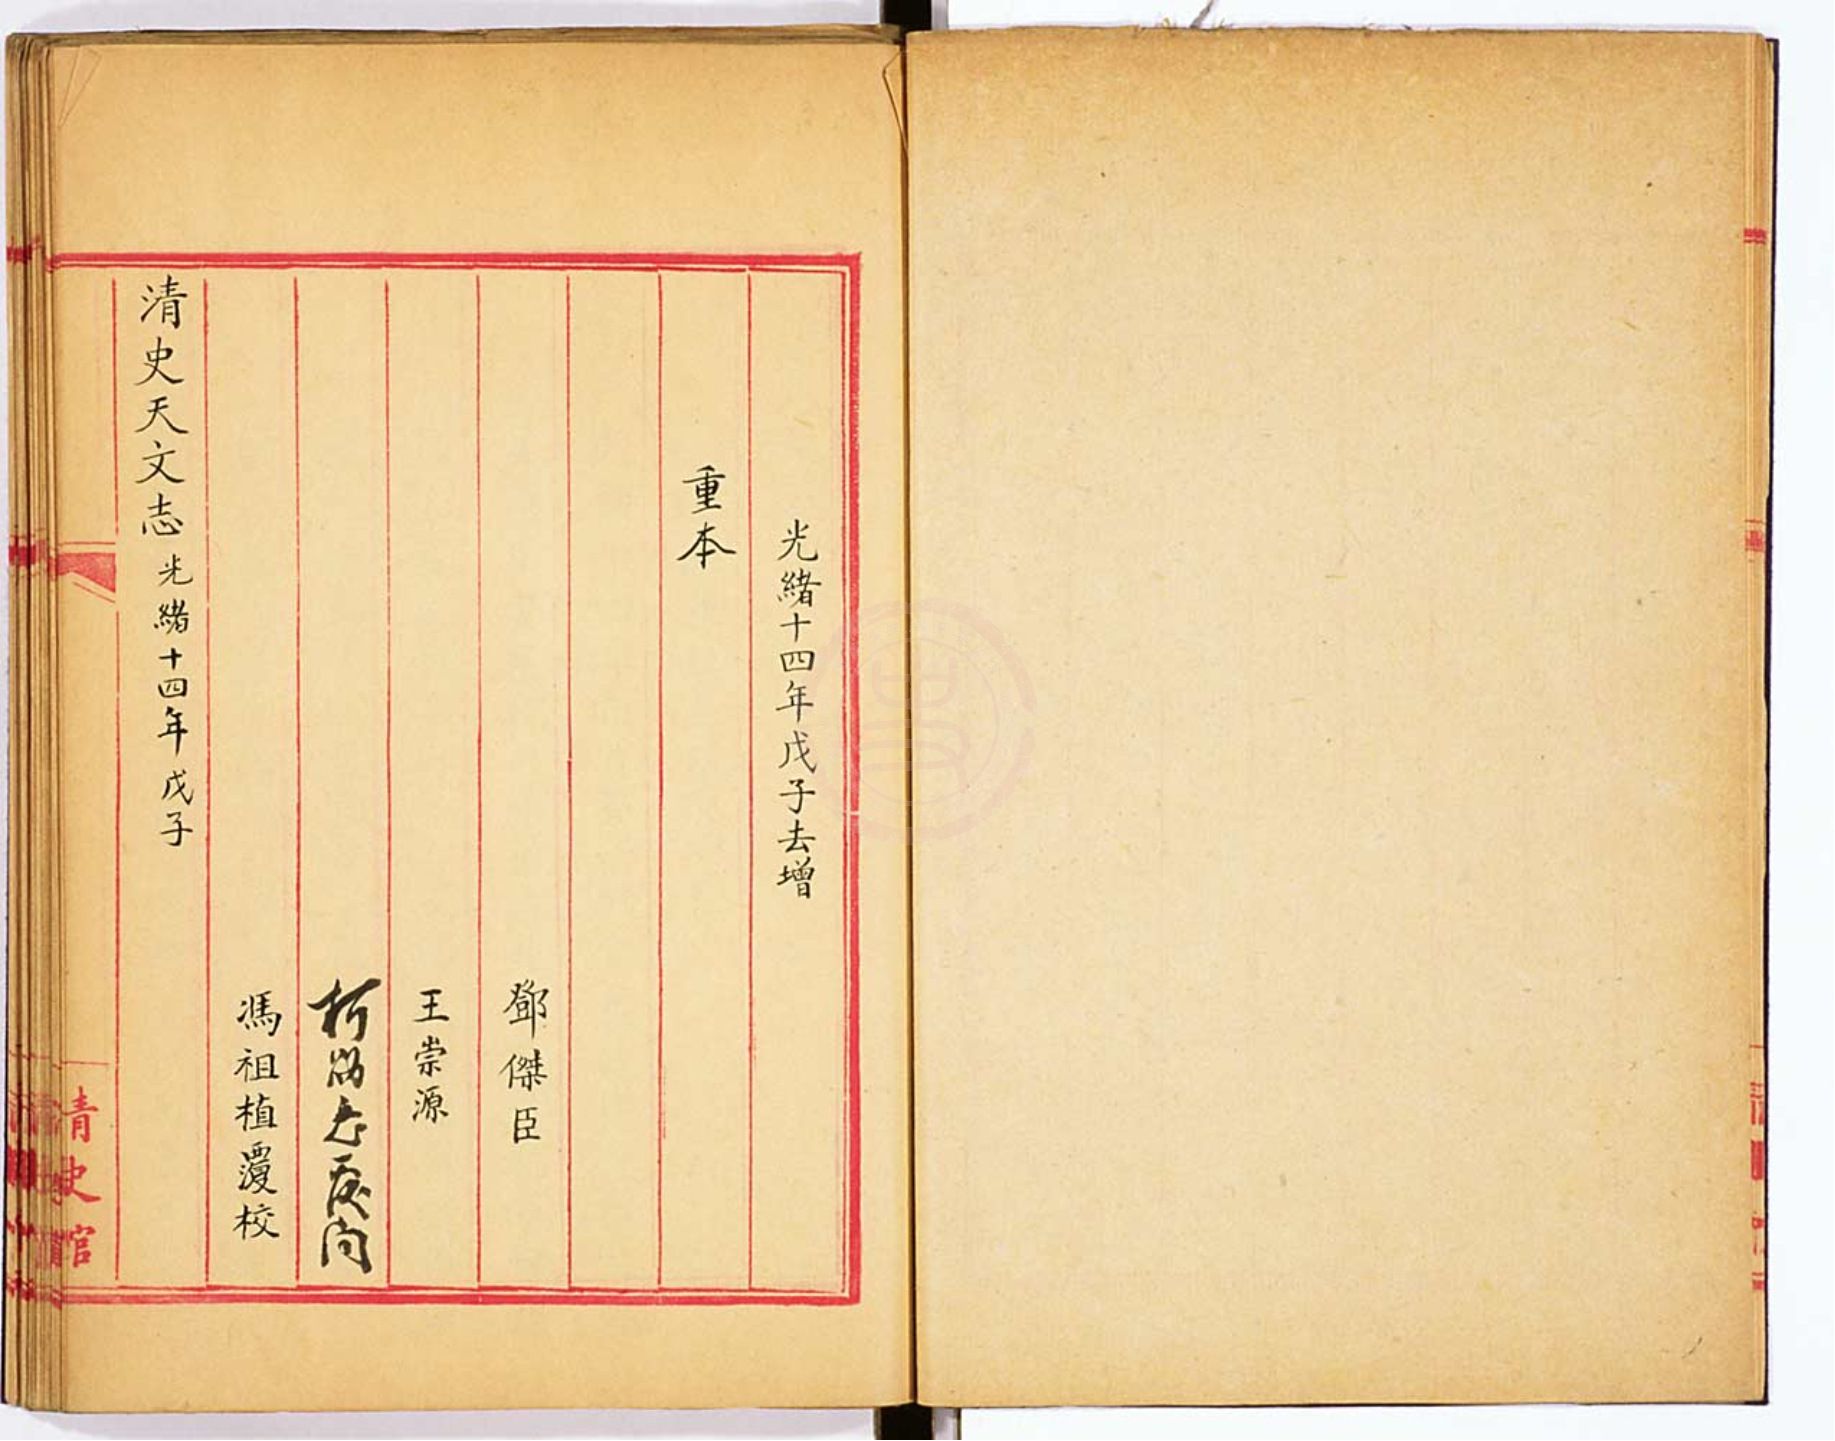 光緒十四年戊子去增
重本
鄧傑臣
王崇源
柯劭忞閱
馮祖植覆校
清史天文志 光緒十四年戊子
清史館